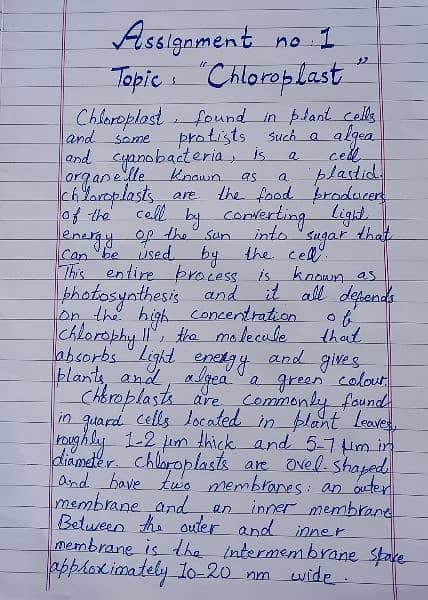 Assignment no. 1
Topic: "Chloroplast"
Chloroplast, found in plant cells
and some protists such a algea
and cyanobacteria, is a cell
organelle known as a plastid.
chloroplasts are the food producers
of the cell by converting light
energy of the sun into sugar that
can be used by the cell.
This entire process is known as
photosynthesis and it all depends
on the high concentration of
chlorophyll, the molecule that
absorbs light energy and gives
plants and algea a green colour.
Chloroplasts are commonly found
in guard cells located in plant leaves,
roughly 1-2 μm thick and 5-7 μm in
diameter. Chloroplasts are ovel shaped
and have two membranes: an outer
membrane and an inner membrane
Between the outer and inner
membrane is the intermembrane space
approximately 10-20 nm wide.